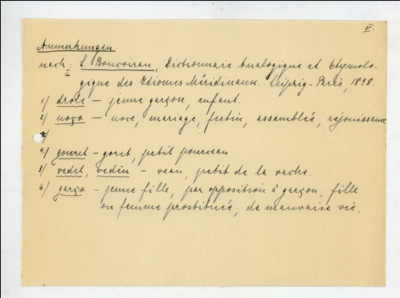 II.
Anmerkungen
nach: L. Boucoiran, Dictionnaire Analogique et Etymolo-
gique des Idiomes Méridionaux. Leipzig-Paris, 1898.
1) drole – jeune garçon, enfant.
2) noço – noce, mariage, festin, assemblée, rejouissance
3)
4) gouret – goret, petit pourceau
5) vedel, vedèu – veau, petit de la vache.
6) garço – jeune fille, par opposition à garçon; fille
ou femme prostituée, de mauvaise vie.